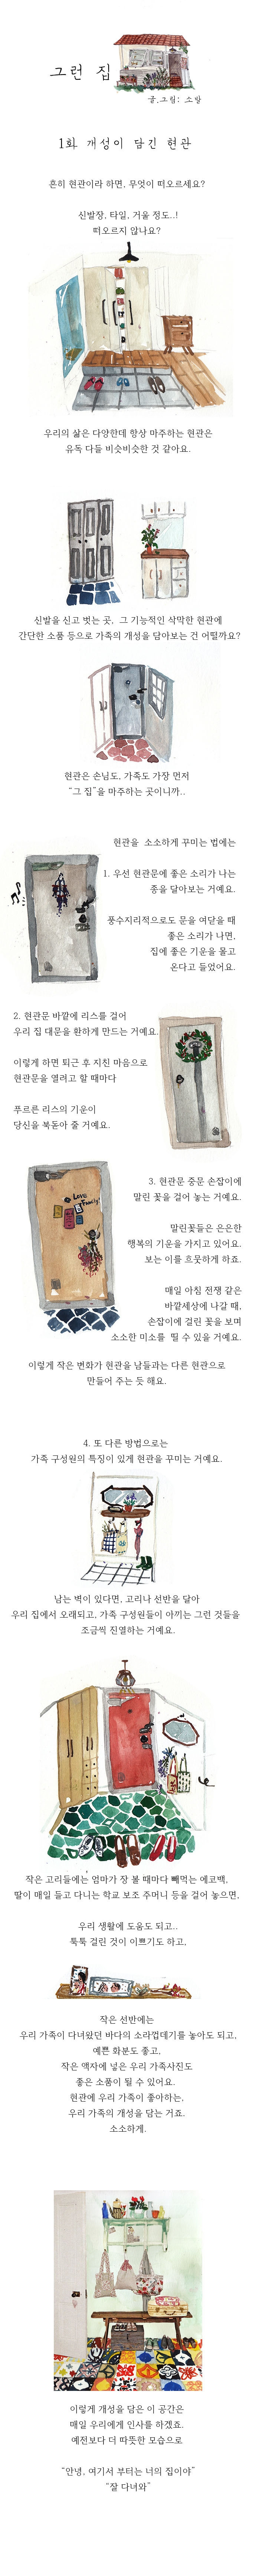 그런 집
글,그림: 소랑
1화 개성이 담긴 현관
흔히 현관이라 하면, 무엇이 떠오르세요?
신발장, 타일, 거울 정도..!
떠오르지 않나요?
우리의 삶은 다양한데 항상 마주하는 현관은
유독 다들 비슷비슷한 것 같아요.
신발을 신고 벗는 곳, 그 기능적인 삭막한 현관에
간단한 소품 등으로 가족의 개성을 담아보는 건 어떨까요?
현관은 손님도, 가족도 가장 먼저
“그 집”을 마주하는 곳이니까..
현관을 소소하게 꾸미는 법에는
1. 우선 현관문에 좋은 소리가 나는
종을 달아보는 거예요.
풍수지리적으로도 문을 여닫을 때
좋은 소리가 나면,
집에 좋은 기운을 몰고
온다고 들었어요.
2. 현관문 바깥에 리스를 걸어
우리 집 대문을 환하게 만드는 거예요.
이렇게 하면 퇴근 후 지친 마음으로
현관문을 열려고 할 때마다
푸르른 리스의 기운이
당신을 북돋아 줄 거예요.
Love
Family!
3. 현관문 중문 손잡이에
말린 꽃을 걸어 놓는 거예요.
말린꽃들은 은은한
행복의 기운을 가지고 있어요.
보는 이를 흐뭇하게 하죠.
매일 아침 전쟁 같은
바깥세상에 나갈 때,
손잡이에 걸린 꽃을 보며
소소한 미소를 띨 수 있을 거예요.
이렇게 작은 변화가 현관을 남들과는 다른 현관으로
만들어 주는 듯 해요.
4. 또 다른 방법으로는
가족 구성원의 특징이 있게 현관을 꾸미는 거예요.
남는 벽이 있다면, 고리나 선반을 달아
우리 집에서 오래되고, 가족 구성원들이 아끼는 그런 것들을
조금씩 진열하는 거예요.
작은 고리들에는 엄마가 장 볼 때마다 빼먹는 에코백,
딸이 매일 들고 다니는 학교 보조 주머니 등을 걸어 놓으면,
우리 생활에 도움도 되고..
툭툭 걸린 것이 이쁘기도 하고,
작은 선반에는
우리 가족이 다녀왔던 바다의 소라껍데기를 놓아도 되고,
예쁜 화분도 좋고,
작은 액자에 넣은 우리 가족사진도
좋은 소품이 될 수 있어요.
현관에 우리 가족이 좋아하는,
우리 가족의 개성을 담는 거죠.
소소하게.
이렇게 개성을 담은 이 공간은
매일 우리에게 인사를 하겠죠.
예전보다 더 따뜻한 모습으로
“안녕, 여기서 부터는 너의 집이야”
“잘 다녀와”